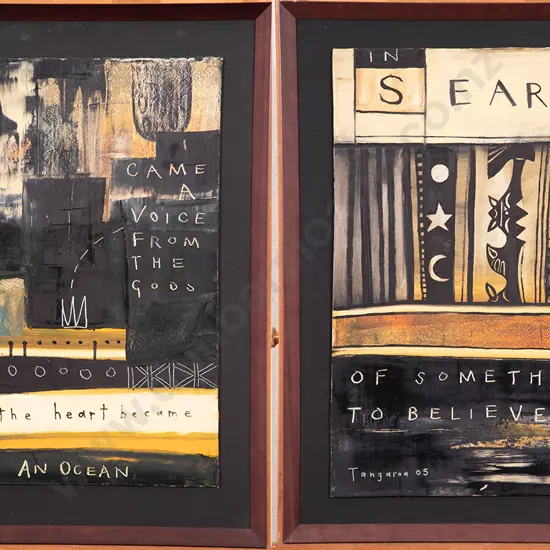 I
CAME
A
VOICE
FROM
THE
GODS
the heart became
AN OCEAN
IN
S EAR
OF SOMETH
TO BELIEVE
Tangaroa 05